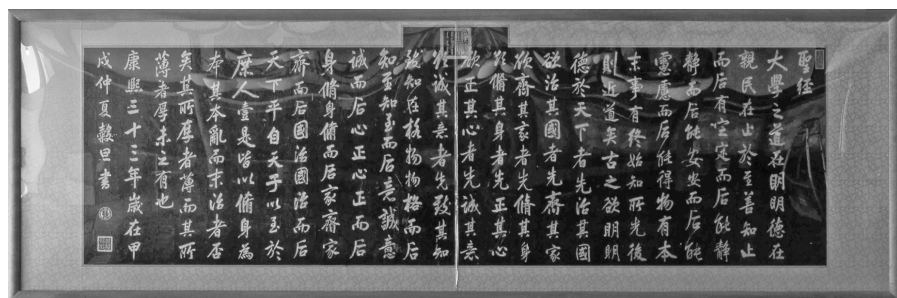 聖經
大學之道在明明德在
親民在止於至善知止
而后有定定而后能靜
靜而后能安安而后能
慮慮而后能得物有本
末事有終始知所先後
則近道矣古之欲明明
德於天下者先治其國
欲治其國者先齊其家
欲齊其家者先脩其身
欲脩其身者先正其心
欲正其心者先誠其意
欲誠其意者先致其知
致知在格物物格而后
知至知至而后意誠意
誠而后心正心正而后
身脩身脩而后家齊家
齊而后國治國治而后
天下平自天子以至於
庶人壹是皆以脩身為
本其本亂而末治者否
矣其所厚者薄而其所
薄者厚未之有也
康熙三十三年歲在甲
戌仲夏穀旦書